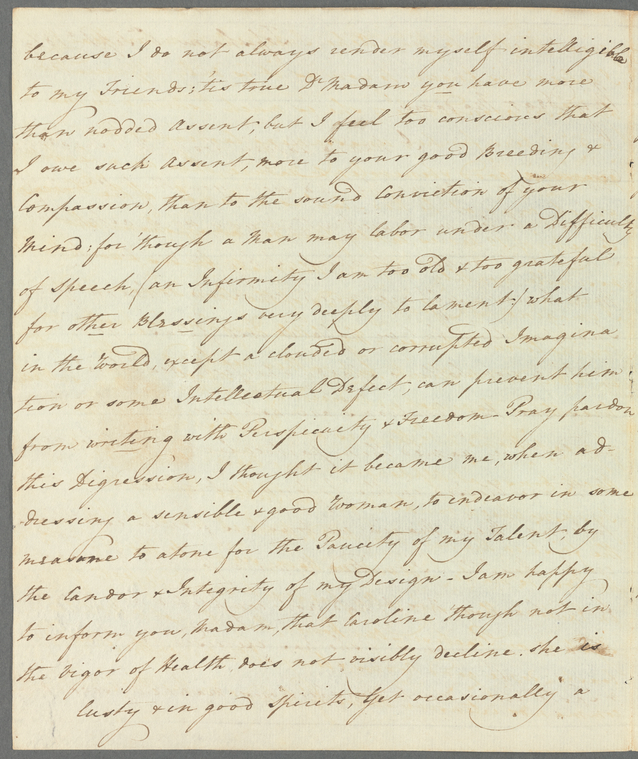 because I do not always render myself intelligible
to my Friends; tis true Dr Madam you have more
than nodded Assent, but I feel too conscious that
I owe such Assent, more to your good Breeding &
Compassion, than to the sound Conviction of your
Mind: for 'though a Man may labor under a Difficulty
of Speech, (an Infirmity I am too old & too grateful
for other Blessings very deeply to lament:) what
in the World, except a clouded or corrupted Imagina
tion or some Intellectual Defect, can prevent him
from writing with Perspicuity & Freedom - Pray pardon
this Digression, I thought it became me, when ad-
dressing a sensible & good Woman, to endeavor in some
measure to atone for the Paucity of my Talent, by
the Candor & Integrity of my Design - I am happy
to inform you, Madam, that Caroline though not in
the vigor of Health does not visibly decline. she is
lusty & in good Spirits, Yet occasionally a